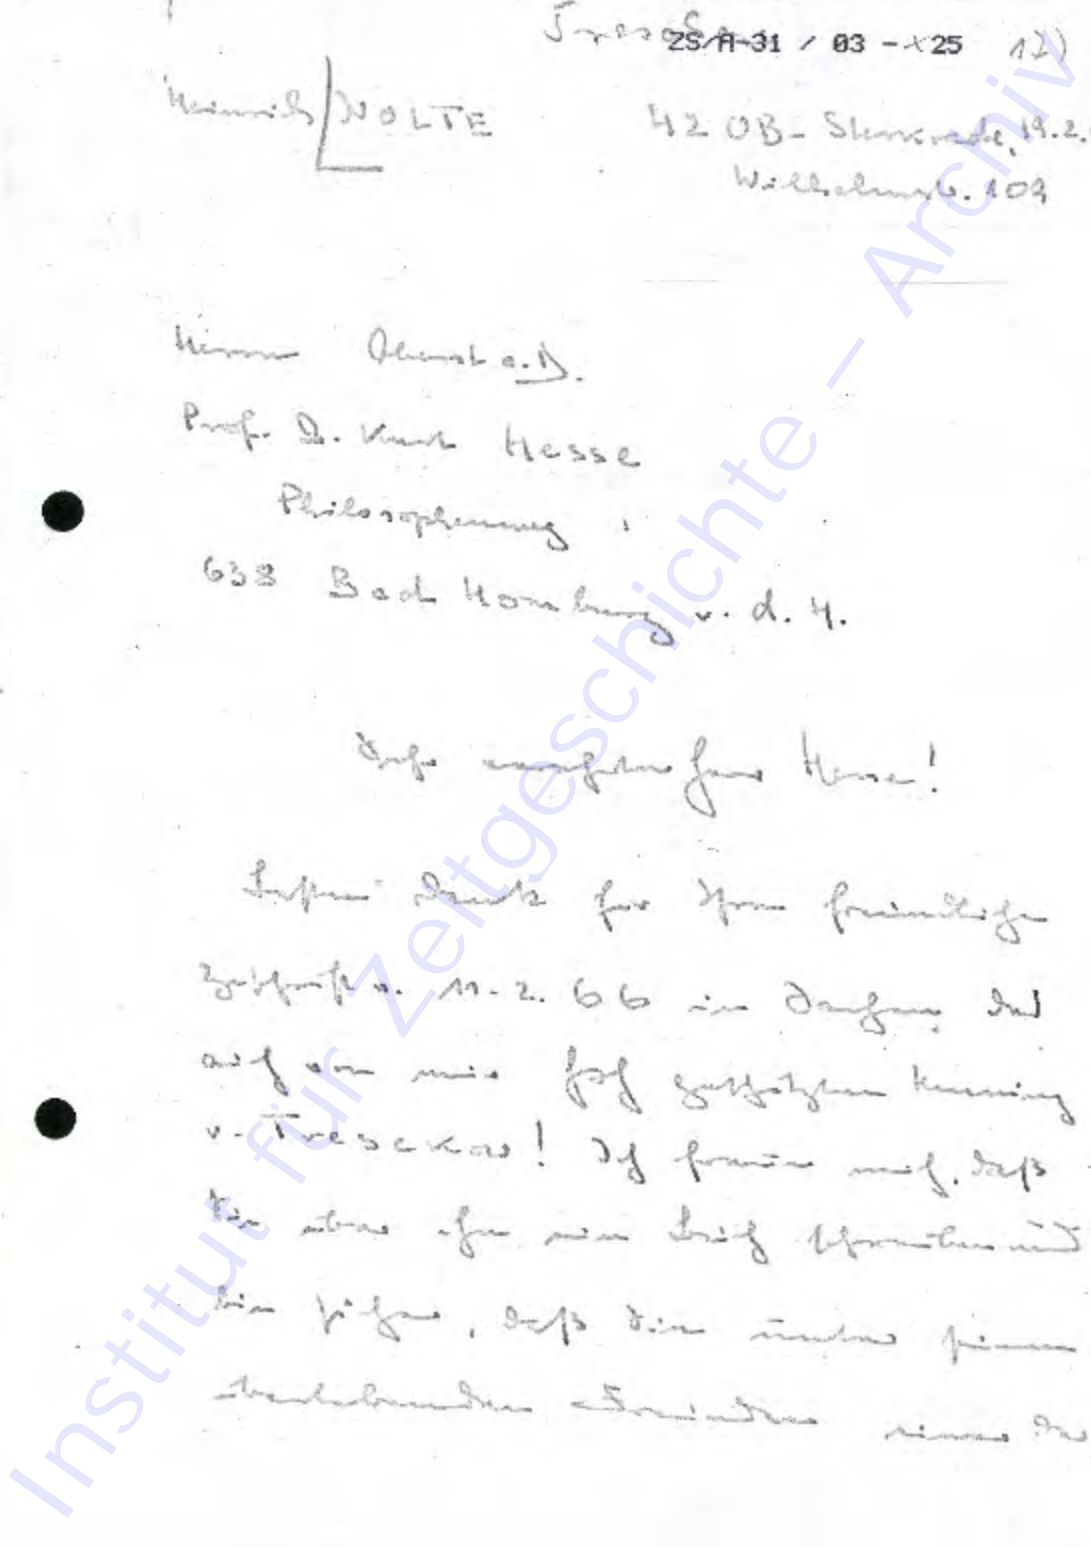 Tresckow
ZS/A-31 / 03 - 25 17)
Heinrich NOLTE
42 OB-Sterkrade, 19.2.
Wilhelmstr. 109
Herrn Oberst a.D.
Prof. D. Kurt Hesse
Philosophenweg
638 Bad Homburg v. d. H.
Sehr verehrter Herr Hesse!
Besten Dank für Ihre freundliche
Zuschrift v. 11.2.66 in Sachen des
auch von mir hoch geschätzten Henning
v. Tresckow! Ich freue mich, daß
Sie über ihn ein Buch schreiben und
bin sicher, daß Sie unter seinen
überlebenden Freunden einer der
Institut für Zeitgeschichte – Archiv